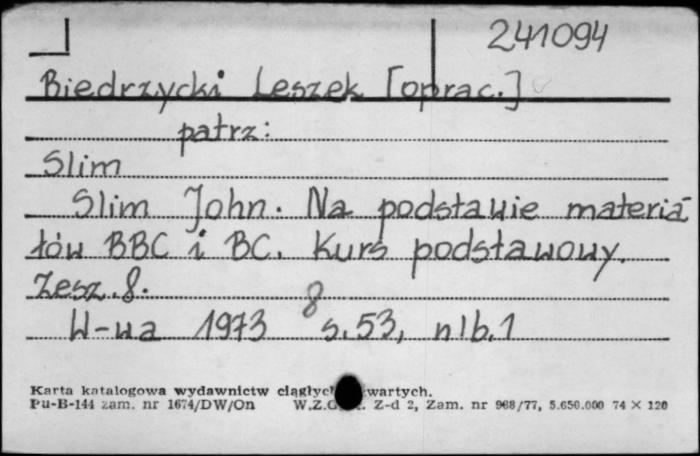 241094
Biedrzycki Leszek [oprac.]
patrz:
Slim
Slim John. Na podstawie materia-
łów BBC i BC. Kurs podstawowy.
Zesz. 8.
8
W-wa 1973 s. 53, nlb. 1
Karta katalogowa wydawnictw ciągłych wartych.
Pu-B-144 zam. nr 1674/DW/On W.Z.G. Z-d 2, Zam. nr 968/77, 5.650.000 74 × 120